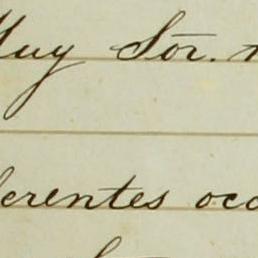 Muy Sõr.
ferentes occ